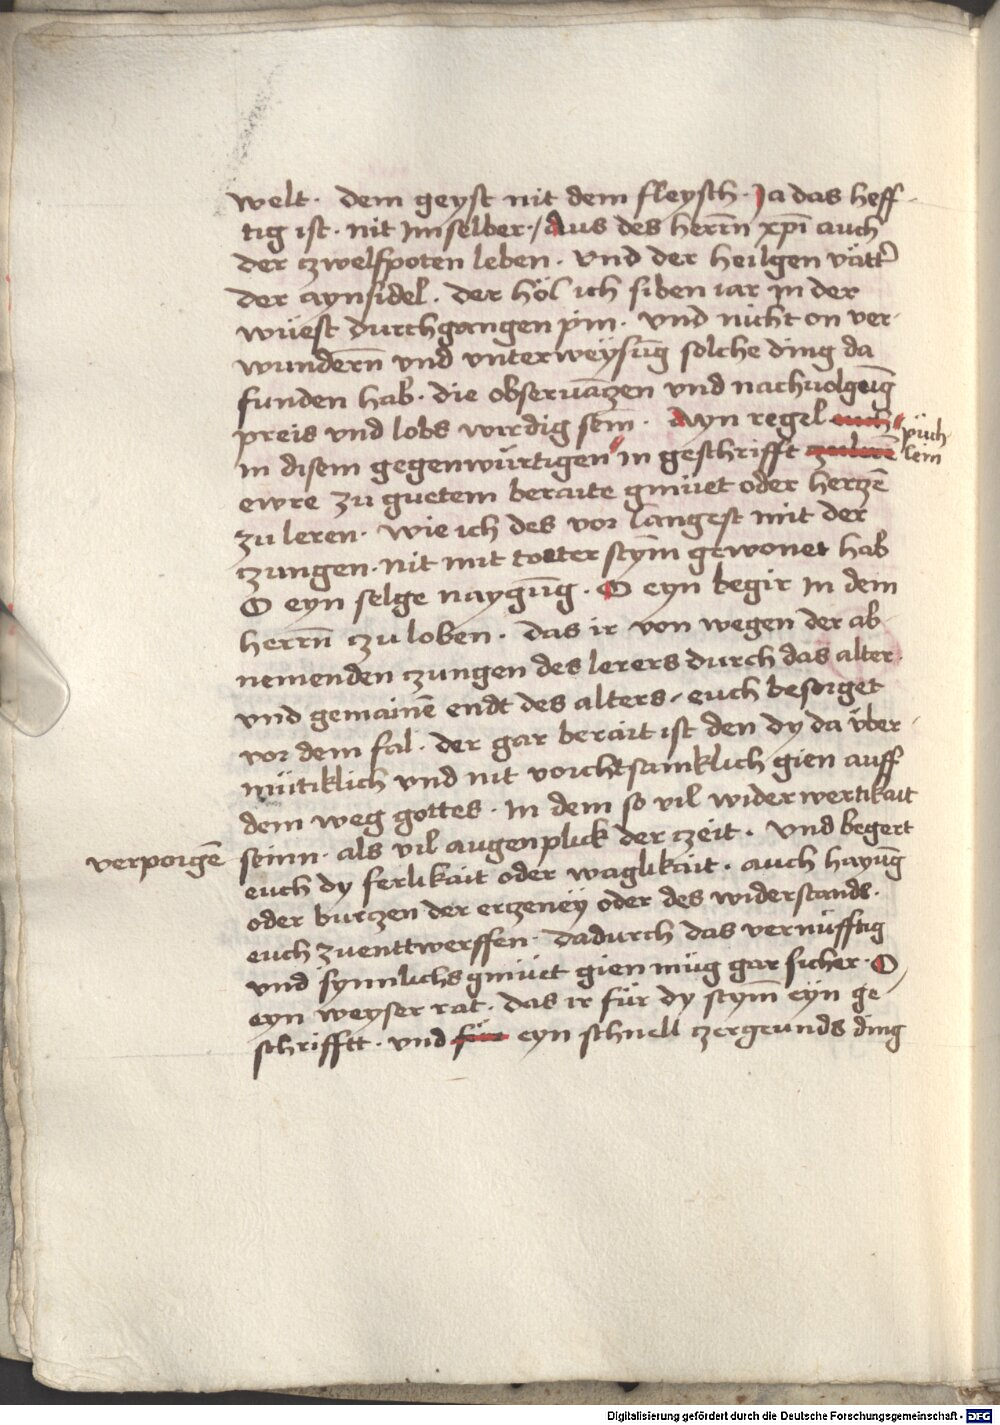 welt · dem geyst nit dem fleysch · Ja das heff-
tig ist · nit Im selber ·/ Aus des herrn̄ xpī auch
der czwelfpoten leben · Vnd der heilgen vätt̓
der aynsidel · der höl ich siben iar In der
wüest durchgangen pin · Vnd nicht on ver-
wundern̄ vnd vnterweÿsūg solche ding da
funden hab · die obseruāczen vnd nachuolgūg
preis vnd lobs wirdig sein · Ayn regel euch
püch
lein
in disem gegenwürtigen " in geschrifft zulerē
ewre zu guetem beraite gmüet oder herczē
zu leren · wie ich des vor langest mit der
czungen · nit mit toter stym̄ gewonet hab
O eyn selge naygūg · O eyn begir In dem
herrn̄ czu loben · das ir von wegen der ab-
nemenden czungen des lerers durch das alter
vnd gemainē endt des alters / euch besorget
vor dem fal · der gar berait ist den dy da über-
mütiklich vnd nit vorchtsamklich gien auff
dem weg gottes · In dem so vil widerwertikait
verporgē
seinn · als vil augenplick der czeit · Vnd begert
euch dy ferlikait oder waglikait · auch hayūg
oder burczen der erczeneÿ oder des widerstands ·
euch zuenttwerffen · dadurch das vernüfftig
vnd synnlichs gmüet gien müg gar sicher · O
eyn weyser rat · das ir für dy stym̄ eÿn ge-
schrifftt · vnd für eyn schnell czergeunds ding
Digitalisierung gefördert durch die Deutsche Forschungsgemeinschaft - DFG